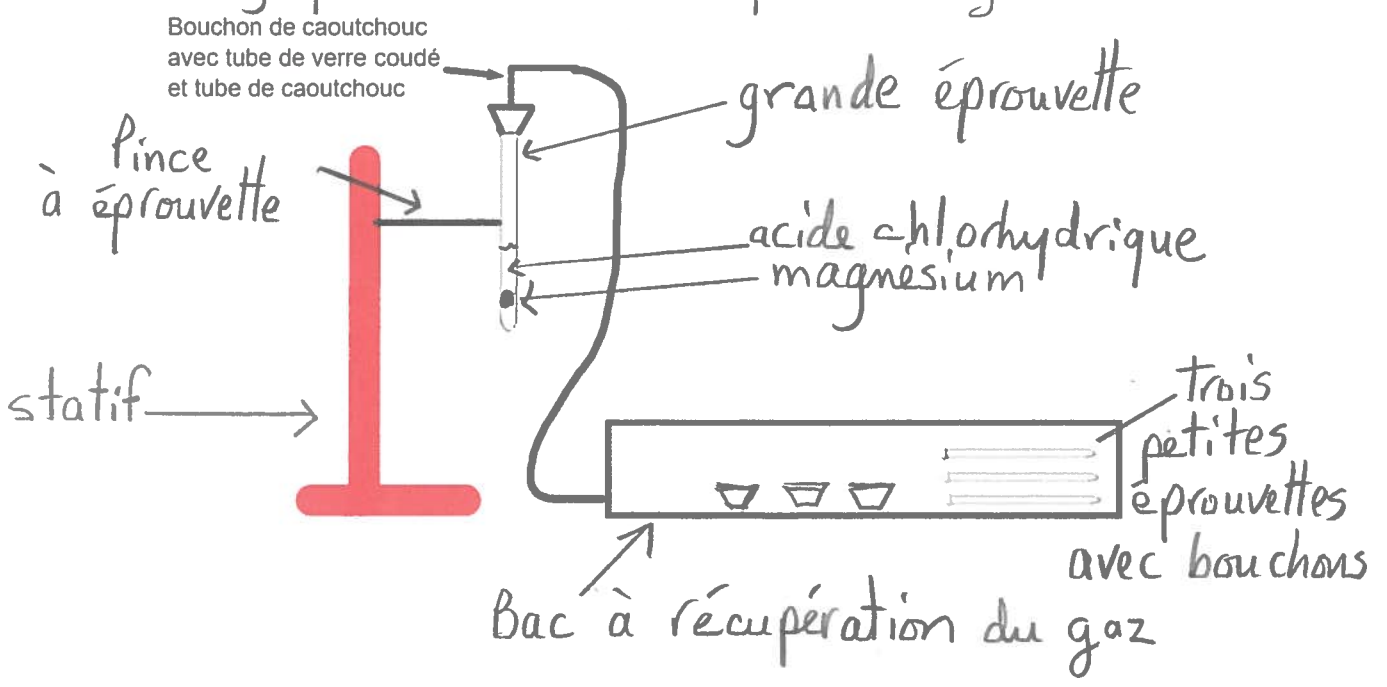 Bouchon de caoutchouc
avec tube de verre coudé
et tube de caoutchouc
grande éprouvette
Pince
à éprouvette
acide chlorhydrique
magnésium
statif
trois
petites
éprouvettes
avec bouchons
Bac à récupération du gaz